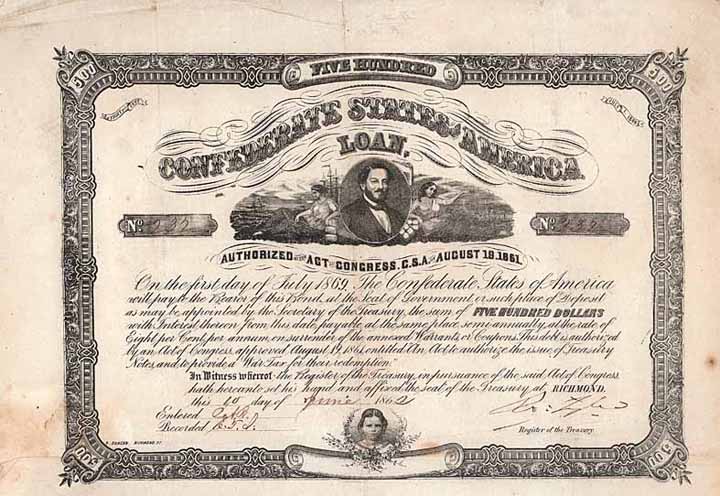 500
FIVE HUNDRED
500
CONFEDERATE STATES OF AMERICA
LOAN,
No 
No 
AUTHORIZED BY THE ACT OF CONGRESS, C.S.A. OF AUGUST 19, 1861.
On the first day of July 1869, The Confederate States of America
will pay to the Bearer of this Bond, at the seat of Government or such place of Deposit
as may be appointed by the Secretary of the Treasury, the sum of FIVE HUNDRED DOLLARS
with Interest thereon from this date, payable at the same place, semi-annually, at the rate of
Eight per Cent, per annum, on surrender of the annexed Warrants or Coupons. This debt is authorized
by an Act of Congress approved August 19, 1861, entitled An Act to authorize the issue of Treasury
Notes, and to provide a War Tax for their redemption.
In Witness whereof the Register of the Treasury, in pursuance of the said Act of Congress,
hath hereunto set his hand and affixed the seal of the Treasury, at RICHMOND.
this 10 day of June 1862
Entered
Recorded
Register of the Treasury.
RICHMOND, VA.
500
500